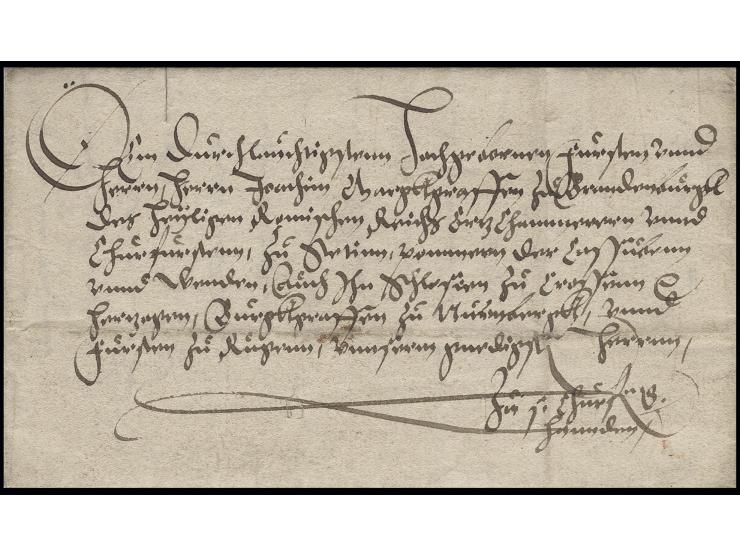 Dem Durchlauchtigstenn Hochgebornen Fürsten vnnd
Herrn, Herrn Joachim Marggkgraffen zu Brandenburgk
des heyligen Romischen Reichs Ertz Cammerern vnnd
Churfürstenn, zu Stetinn, pommern der Cassuben
vnnd Wenden, Auch Inn Schlesien zu Crossenn
Hertzogen, Burgkgraffen zu Nurmbergk, vnnd
Fürsten zu Rugenn, vnnserm gnedigst Herrnn,
Zu Churf. G.
hannden,